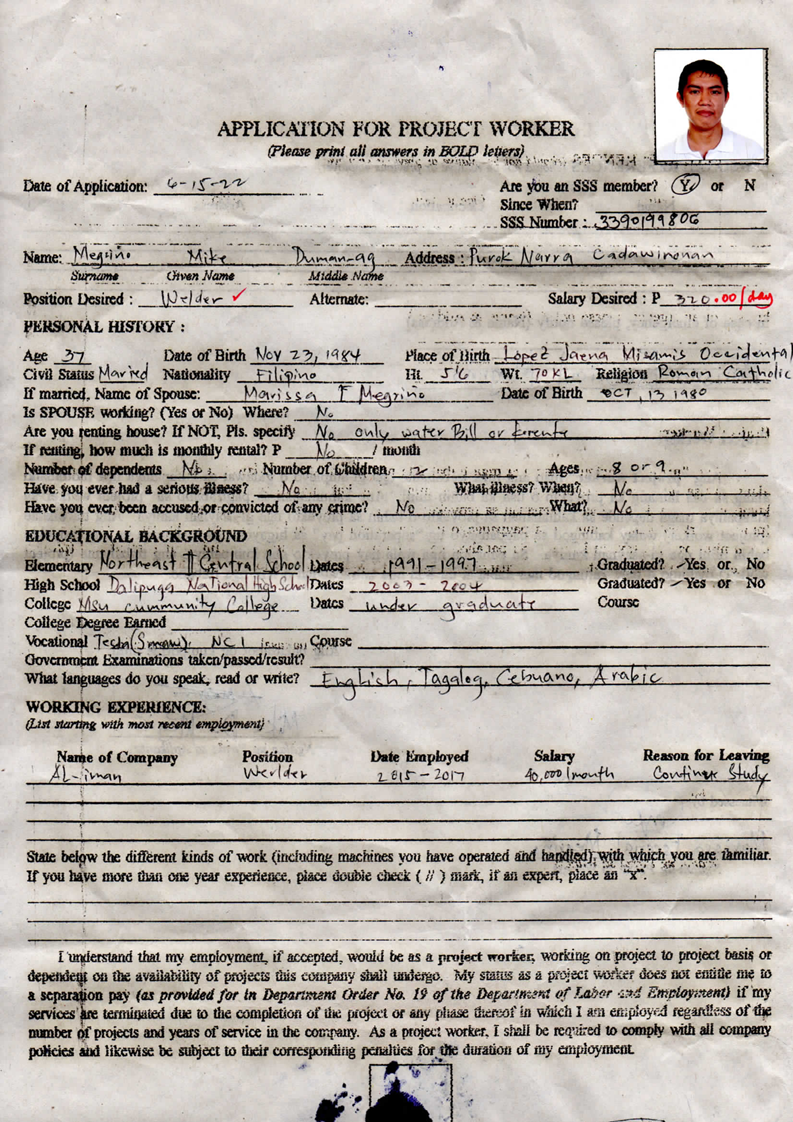 APPLICATION FOR PROJECT WORKER
(Please print all answers in BOLD letters)
Date of Application: 6-15-22 Are you an SSS member? Y or N
Since When?
SSS Number : 3390199806
Name: Megriño Mike Duman-ag Address : Purok Narra Cadawinonan
Surname Given Name Middle Name
Position Desired : Welder ✓ Alternate: Salary Desired : P 320.00/day
PERSONAL HISTORY :
Age 37 Date of Birth Nov 23, 1984 Place of Birth Lopez Jaena Misamis Occidental
Civil Status Maried Nationality Filipino Ht. 5'6 Wt. 70 KL Religion Roman Catholic
If married, Name of Spouse: Marissa F Megriño Date of Birth OCT, 13 1980
Is SPOUSE working? (Yes or No) Where? No
Are you renting house? If NOT, Pls. specify No only water Bill or
If renting, how much is monthly rental? P No / month
Number of dependents No Number of Children 2 Ages 8 or 9
Have you ever had a serious illness? No What illness? When? No
Have you ever been accused or convicted of any crime? No What? No
EDUCATIONAL BACKGROUND
Elementary Northeast II Central School Dates 1991-1997 Graduated? Yes or No
High School Dalipuga National High School Dates 2003 - 2004 Graduated? Yes or No
College Msu cummunity College Dates under graduate Course
College Degree Earned
Vocational Tesda (Smaw). NC 1 Course
Government Examinations taken/passed/result?
What languages do you speak, read or write? English, Tagalog, Cebuano, Arabic
WORKING EXPERIENCE:
(List starting with most recent employment)
Name of Company Position Date Employed Salary Reason for Leaving
AL-iman Werlder 2015-2017 40,000/month Continue Study
State below the different kinds of work (including machines you have operated and handled) with which you are familiar.
If you have more than one year experience, place double check ( // ) mark, if an expert, place an "x".
I understand that my employment, if accepted, would be as a project worker, working on project to project basis or
dependent on the availability of projects this company shall undergo. My status as a project worker does not entitle me to
a separation pay (as provided for in Department Order No. 19 of the Department of Labor and Employment) if my
services are terminated due to the completion of the project or any phase thereof in which I am employed regardless of the
number of projects and years of service in the company. As a project worker, I shall be required to comply with all company
policies and likewise be subject to their corresponding penalties for the duration of my employment.